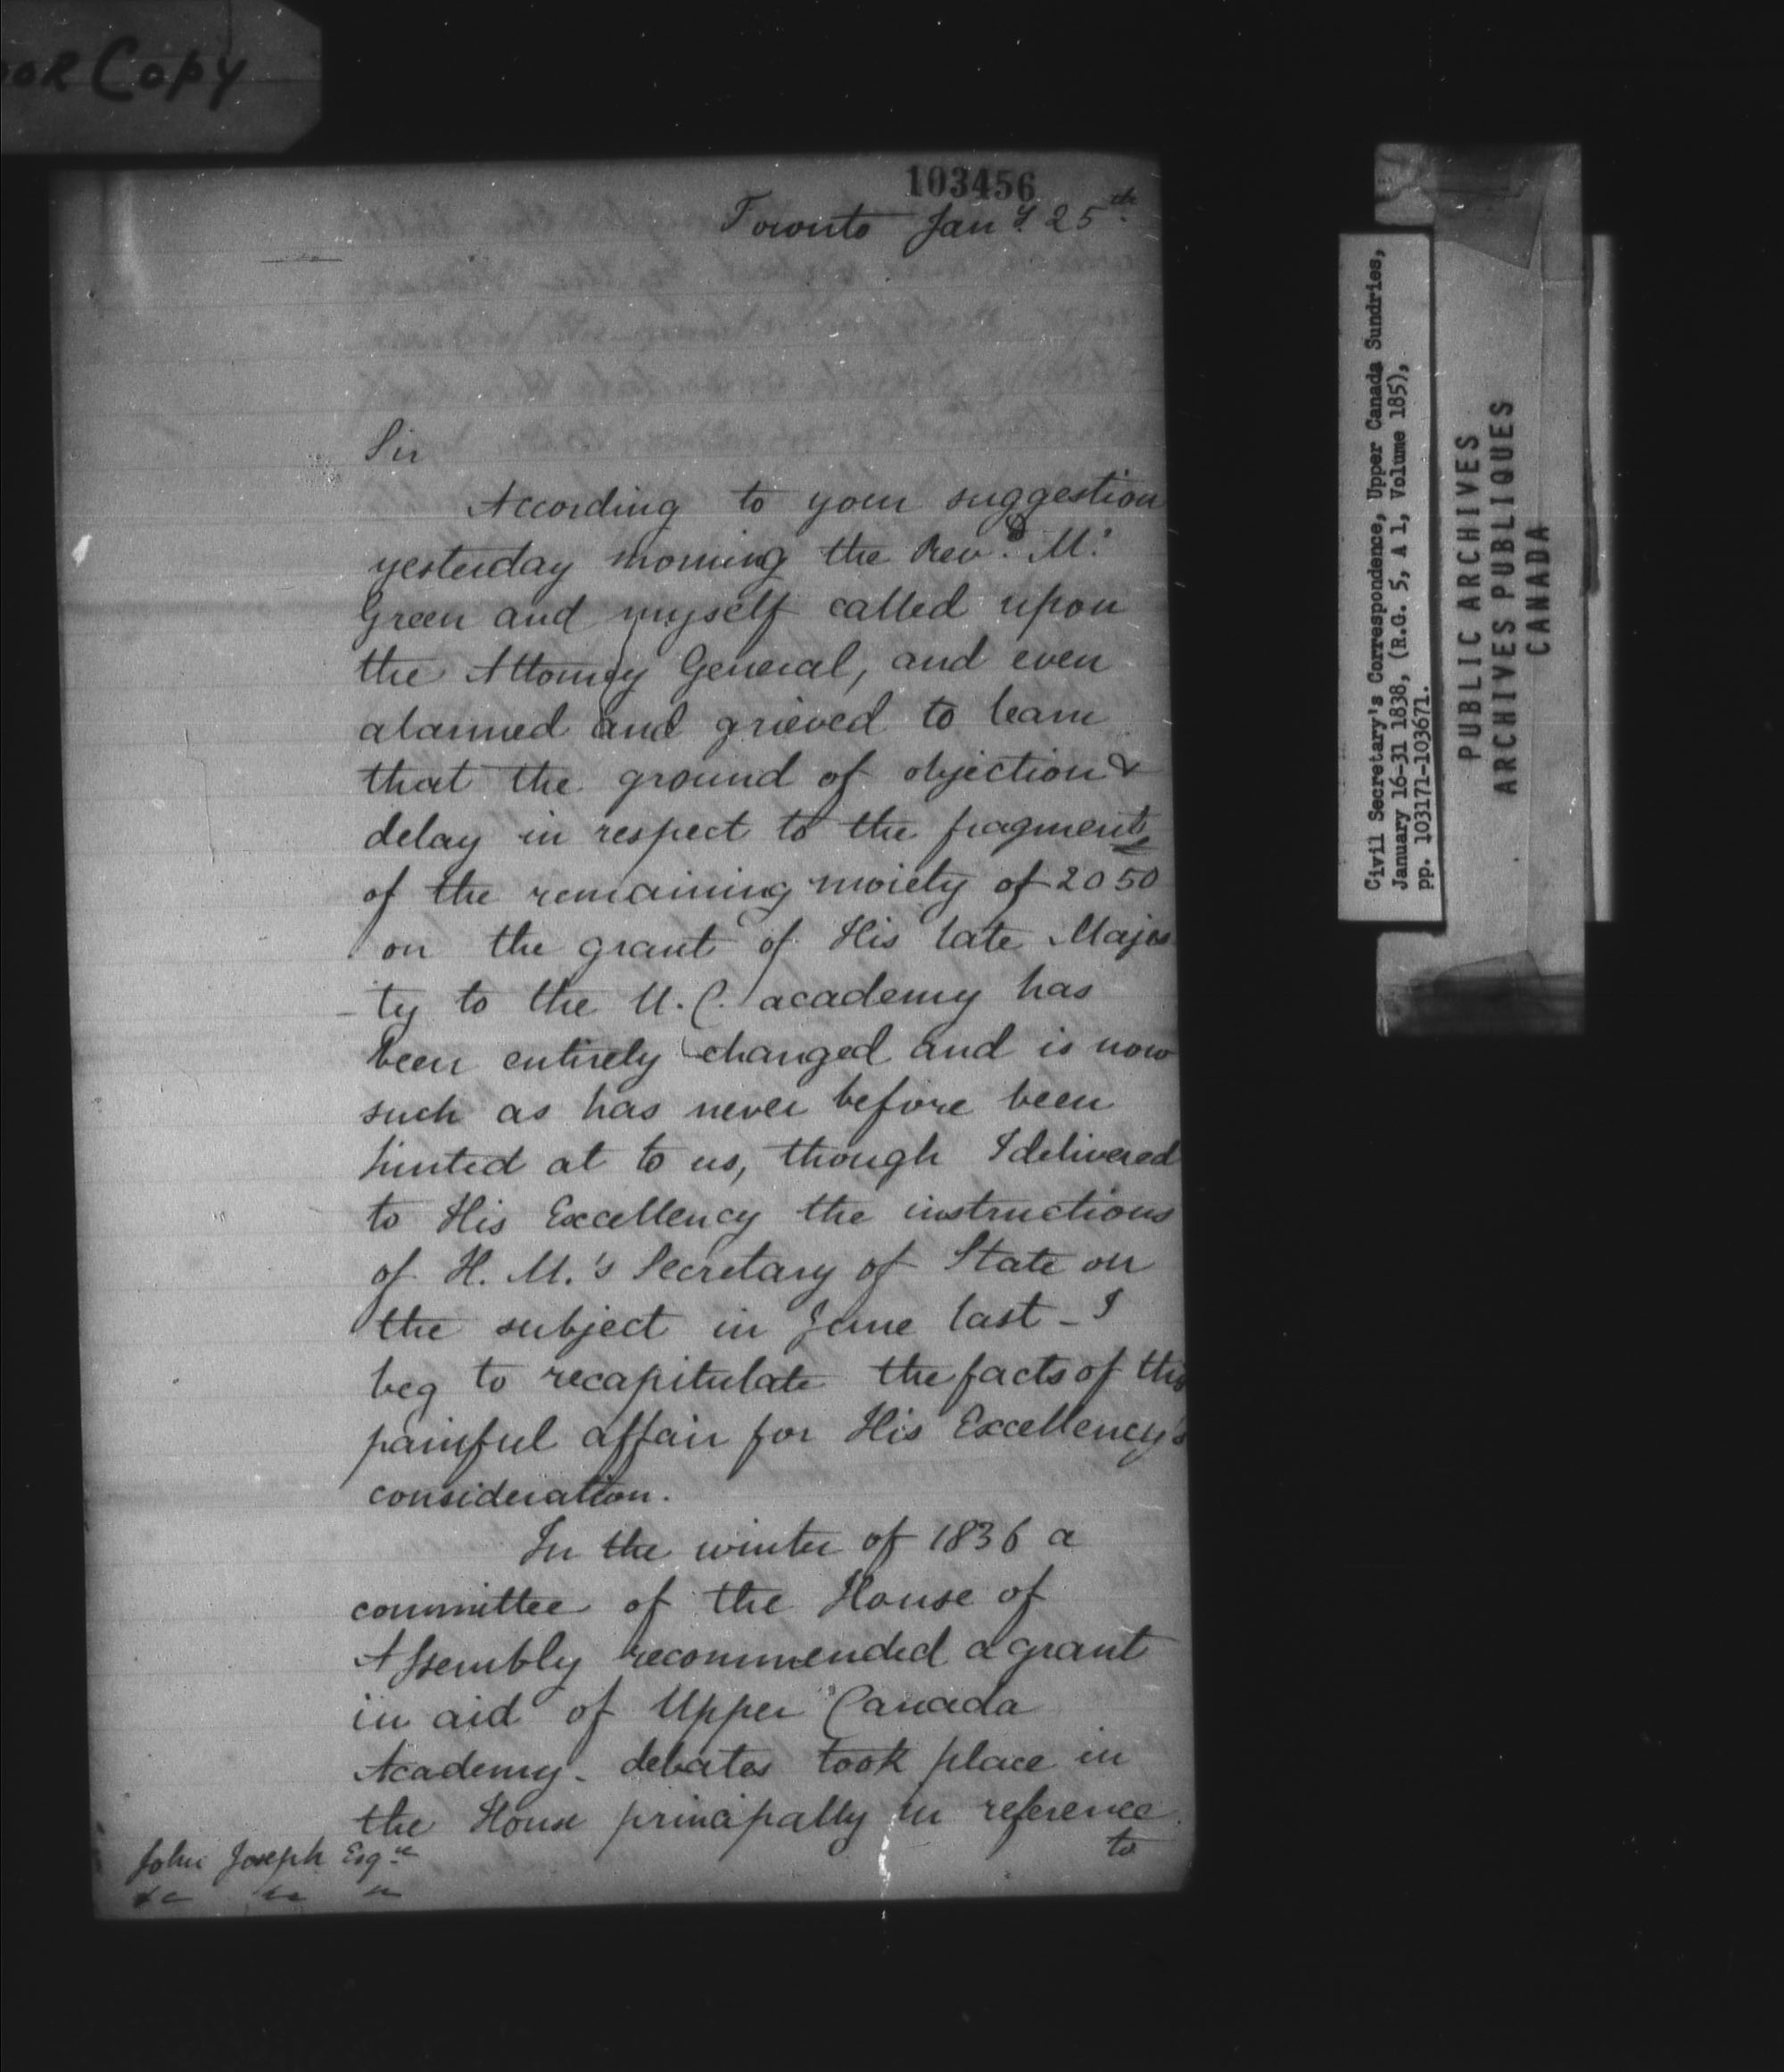 OR Copy
103456
Toronto Jany 25th
Sir
According to your suggestion
yesterday morning the Revd. Mr
Green and myself called upon
the Attorney General, and even
alarmed and grieved to learn
that the ground of objection &
delay in respect to the fragments
of the remaining moiety of 2050
on the grant of His late Majes
-ty to the U.C. academy has
been entirely changed and is now
such as has never before been
hinted at to us, though I delivered
to His Excellency the instructions
of H. M.'s Secretary of State on
the subject in June last - I
beg to recapitulate the facts of this
painful affair for His Excellency's
consideration.
In the winter of 1836 a
committee of the House of
Assembly recommended a grant
in aid of Upper Canada
Academy - debates took place in
the House principally in reference
to
John Joseph Esqre
&c &c &c
Civil Secretary's Correspondence, Upper Canada Sundries,
January 16-31 1838, (R.G. 5, A 1, Volume 185),
pp. 103171-103671.
PUBLIC ARCHIVES
ARCHIVES PUBLIQUES
CANADA